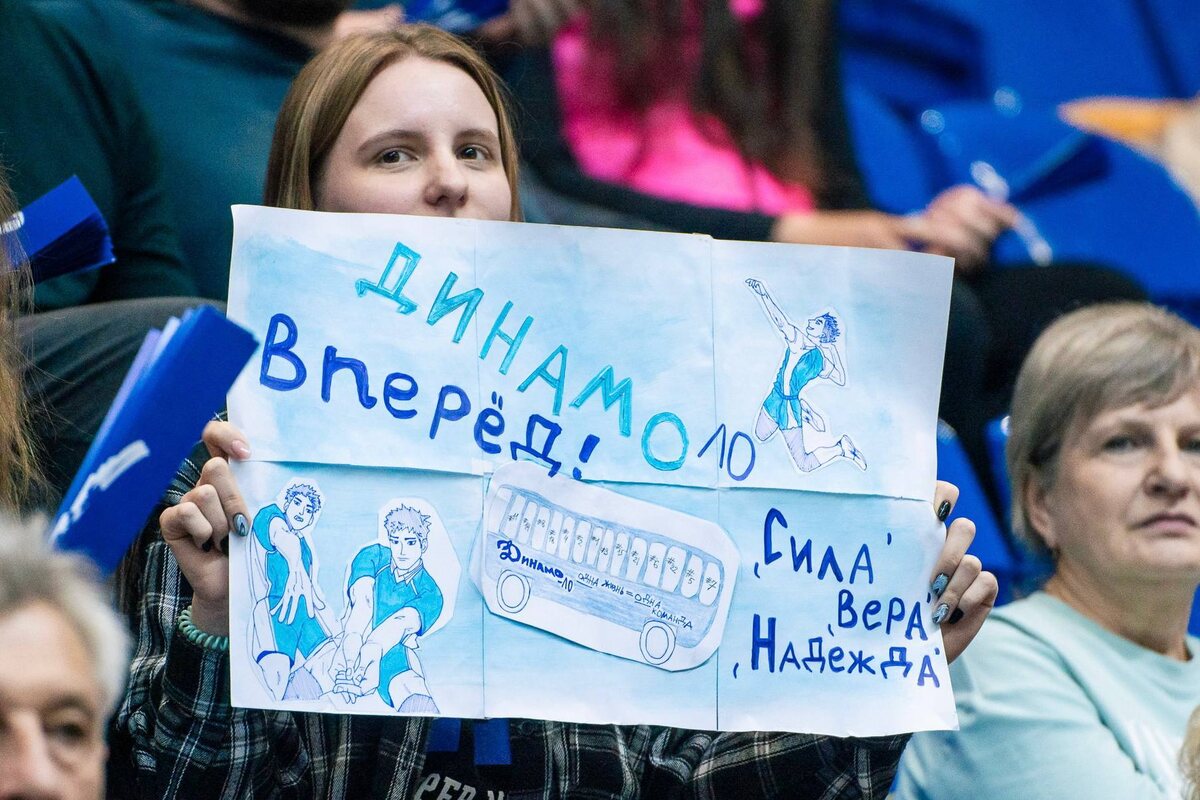 ДИНАМО ЛО
Вперёд!
Динамо-ЛО
ОДНА ЖИЗНЬ = ОДНА
КОМАНДА
Сила
Вера
Надежда